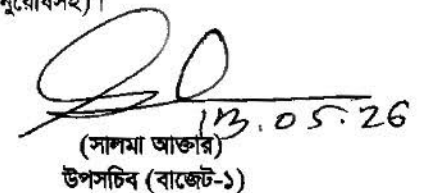 নুরোধসহ)।
13.05.26
(সালমা আক্তার)
উপসচিব (বাজেট-১)